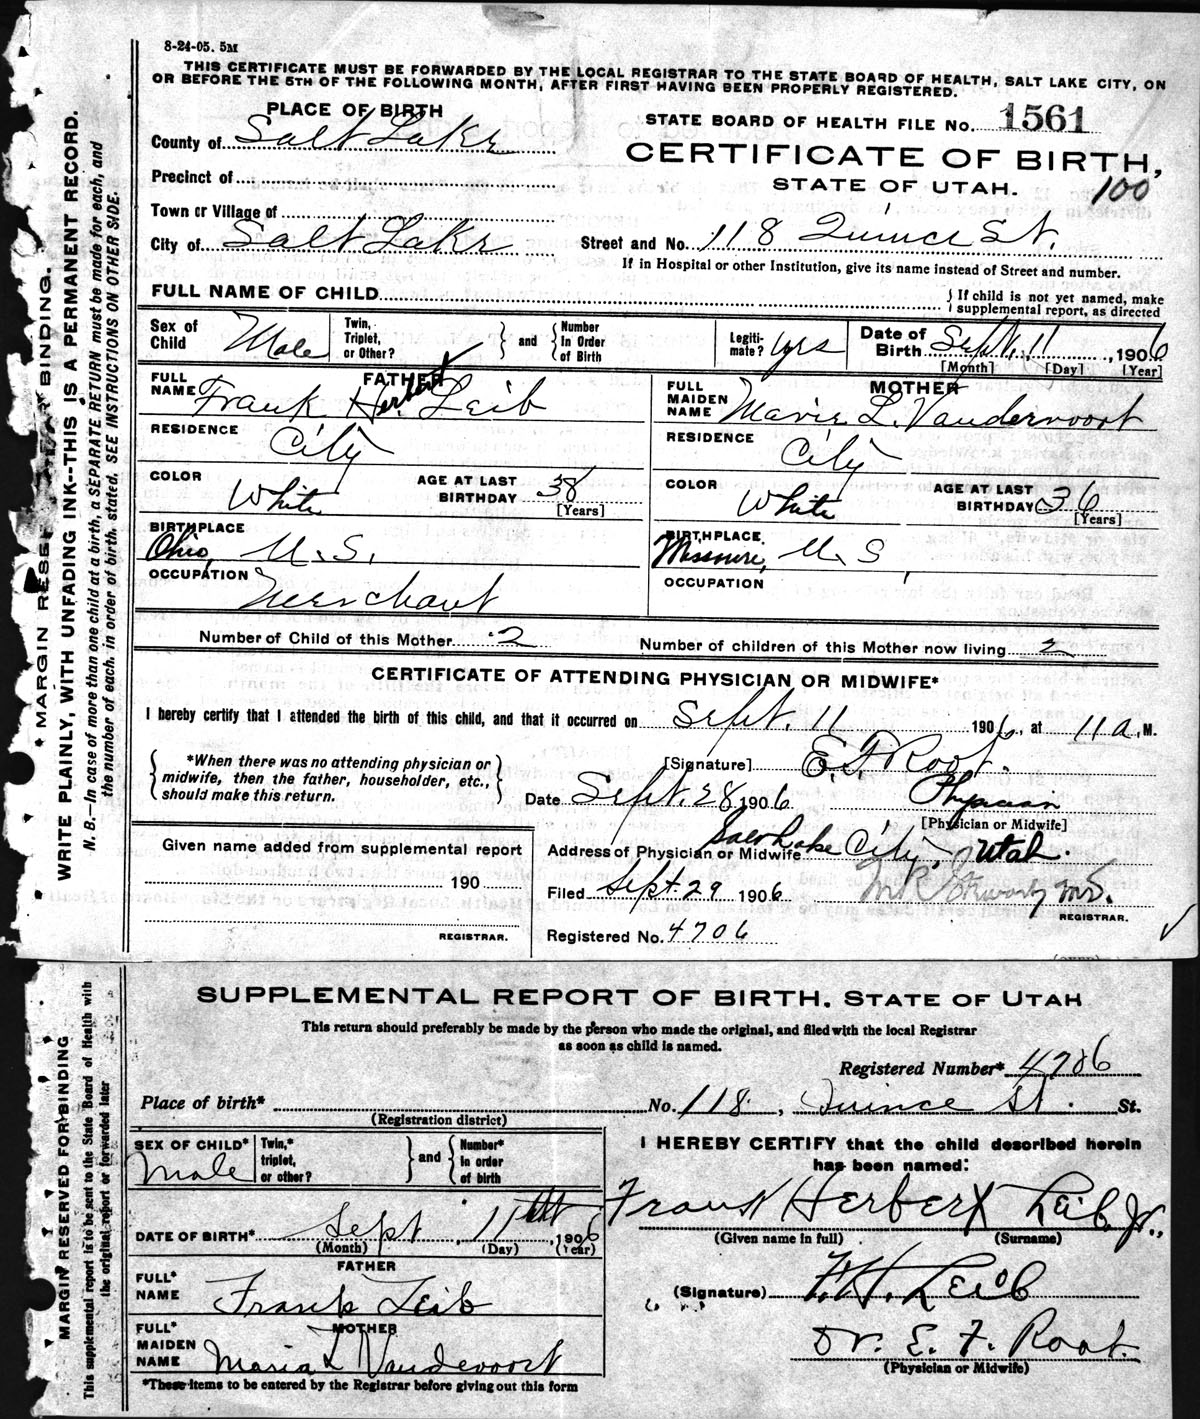 8-24-05. 5M
THIS CERTIFICATE MUST BE FORWARDED BY THE LOCAL REGISTRAR TO THE STATE BOARD OF HEALTH, SALT LAKE CITY, ON
OR BEFORE THE 5TH OF THE FOLLOWING MONTH, AFTER FIRST HAVING BEEN PROPERLY REGISTERED.
PLACE OF BIRTH
STATE BOARD OF HEALTH FILE No. 1561
County of Salt Lake
CERTIFICATE OF BIRTH,
Precinct of
STATE OF UTAH.
100
Town or Village of
City of Salt Lake Street and No. 118 Quince St.
If in Hospital or other Institution, give its name instead of Street and number.
FULL NAME OF CHILD
} If child is not yet named, make
supplemental report, as directed
Sex of Child Male
Twin, Triplet, or Other? } and { Number In Order of Birth
Legitimate? yes
Date of Birth Sept. 11, 1906
[Month] [Day] [Year]
FATHER
FULL NAME Frank Herbert Leib
RESIDENCE City
COLOR White AGE AT LAST BIRTHDAY 38
[Years]
BIRTHPLACE Ohio, U. S.
OCCUPATION Merchant
MOTHER
FULL MAIDEN NAME Marie L. Vandervoort
RESIDENCE City
COLOR White AGE AT LAST BIRTHDAY 36
[Years]
BIRTHPLACE, Missouri, U. S
OCCUPATION
Number of Child of this Mother 2 Number of children of this Mother now living 2
CERTIFICATE OF ATTENDING PHYSICIAN OR MIDWIFE*
I hereby certify that I attended the birth of this child, and that it occurred on Sept. 11 1906, at 11 a. M.
{ *When there was no attending physician or
midwife, then the father, householder, etc.,
should make this return. }
[Signature] E. F. Root.
Date Sept. 28, 1906 Physician
[Physician or Midwife]
Address of Physician or Midwife Salt Lake City, Utah.
Given name added from supplemental report
190
REGISTRAR.
Filed Sept. 29 1906
REGISTRAR.
Registered No. 4706
* MARGIN RESERVED FOR BINDING.
WRITE PLAINLY, WITH UNFADING INK--THIS IS A PERMANENT RECORD.
N. B.—In case of more than one child at a birth, a SEPARATE RETURN must be made for each, and
the number of each, in order of birth, stated. SEE INSTRUCTIONS ON OTHER SIDE.
SUPPLEMENTAL REPORT OF BIRTH. STATE OF UTAH
This return should preferably be made by the person who made the original, and filed with the local Registrar
as soon as child is named.
Registered Number* 4706
Place of birth* No. 118, Quince St. St.
(Registration district)
SEX OF CHILD* Male
Twin,* triplet, or other? } and { Number* In order of birth
DATE OF BIRTH* Sept 11th, 1906
(Month) (Day) (Year)
FATHER
FULL* NAME Frank Leib
MOTHER
FULL* MAIDEN NAME Maria L Vandevoort
*These items to be entered by the Registrar before giving out this form
I HEREBY CERTIFY that the child described herein
has been named:
Frank Herbert Leib, Jr.,
(Given name in full) (Surname)
(Signature) F. H. Leib
Dr. E. F. Root.
(Physician or Midwife)
MARGIN RESERVED FOR BINDING
This supplemental report is to be sent to the State Board of Health with
the original report or forwarded later